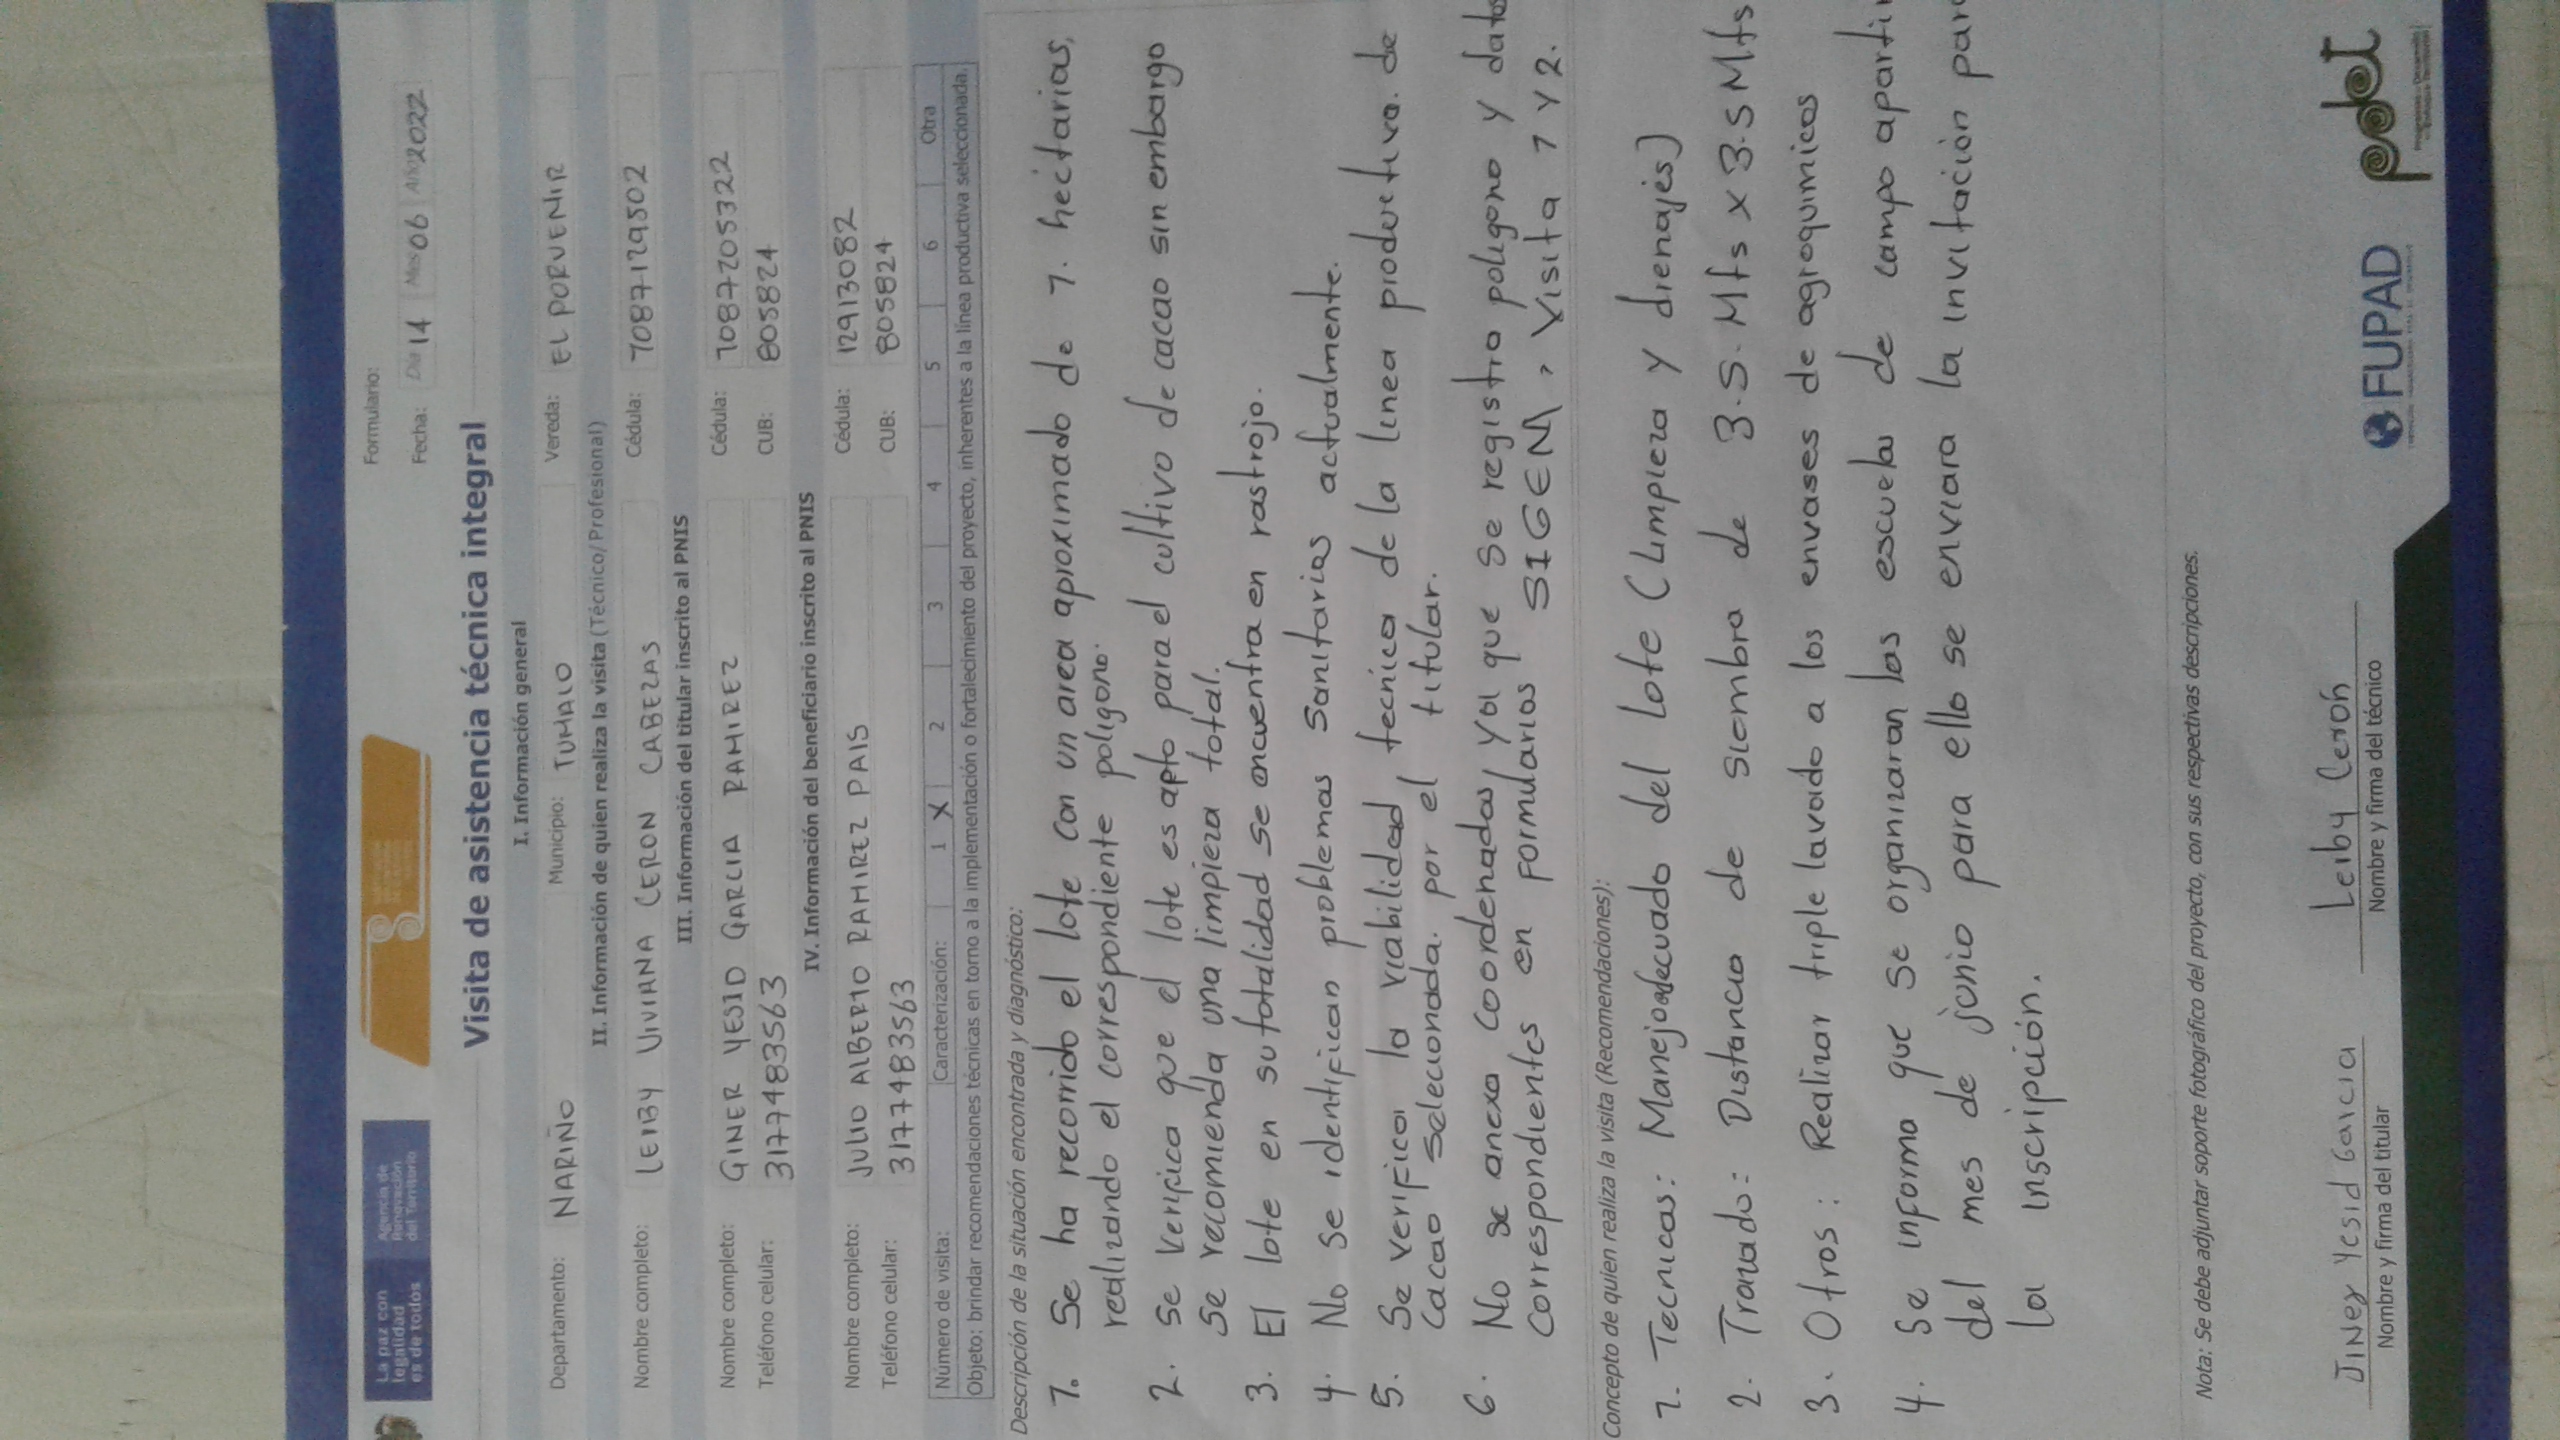 La paz con
legalidad
es de todos
Agencia de
Renovación
del Territorio
Formulario:
Fecha: Dia 14 Mes 06 Año 2022
Visita de asistencia técnica integral
I. Información general
Departamento: NARIÑO Municipio: TUMACO Vereda: EL PORVENIR
II. Información de quien realiza la visita (Técnico/Profesional)
Nombre completo: LEIBY VIVIANA CERON CABEZAS Cédula: 1087129502
III. Información del titular inscrito al PNIS
Nombre completo: GINER YESID GARCIA RAMIREZ Cédula: 1087205322
Teléfono celular: 3177483563 CUB: 805824
IV. Información del beneficiario inscrito al PNIS
Nombre completo: JULIO ALBERTO RAMIREZ PAIS Cédula: 12913082
Teléfono celular: 3177483563 CUB: 805824
Número de visita: Caracterización: 1 X 2 3 4 5 6 Otra
Objeto: brindar recomendaciones técnicas en torno a la implementación o fortalecimiento del proyecto, inherentes a la línea productiva seleccionada.
Descripción de la situación encontrada y diagnóstico:
1. Se ha recorrido el lote con un area aproximado de 1. hectarias,
realizando el correspondiente poligono.
2. se verifica que el lote es apto para el cultivo de cacao sin embargo
se recomienda una limpieza total.
3. El lote en su totalidad se encuentra en rastrojo.
4. No se identifican problemas sanitarios actualmente.
5. Se verifica la viabilidad tecnica de la linea productiva. de
cacao seleccionada. por el titular.
6. No se anexa coordenadas ya que se registro poligono y datos
correspondientes en formularios SIGEM, Visita 1 y 2.
Concepto de quien realiza la visita (Recomendaciones):
1. Tecnicas: Manejo adecuado del lote (Limpieza y drenajes)
2. Trazado: Distancia de siembra de 3.5.Mts x 3.5 Mts
3. Otros: Realizar triple lavado a los envases de agroquimicos
4. Se informa que se organizaran las escuelas de campo apartir
del mes de junio para ello se enviara la invitación para
la inscripción.
Nota: Se debe adjuntar soporte fotográfico del proyecto, con sus respectivas descripciones.
JINER Yesid Garcia
Nombre y firma del titular
Leiby Cerón
Nombre y firma del técnico
FUPAD
pdet